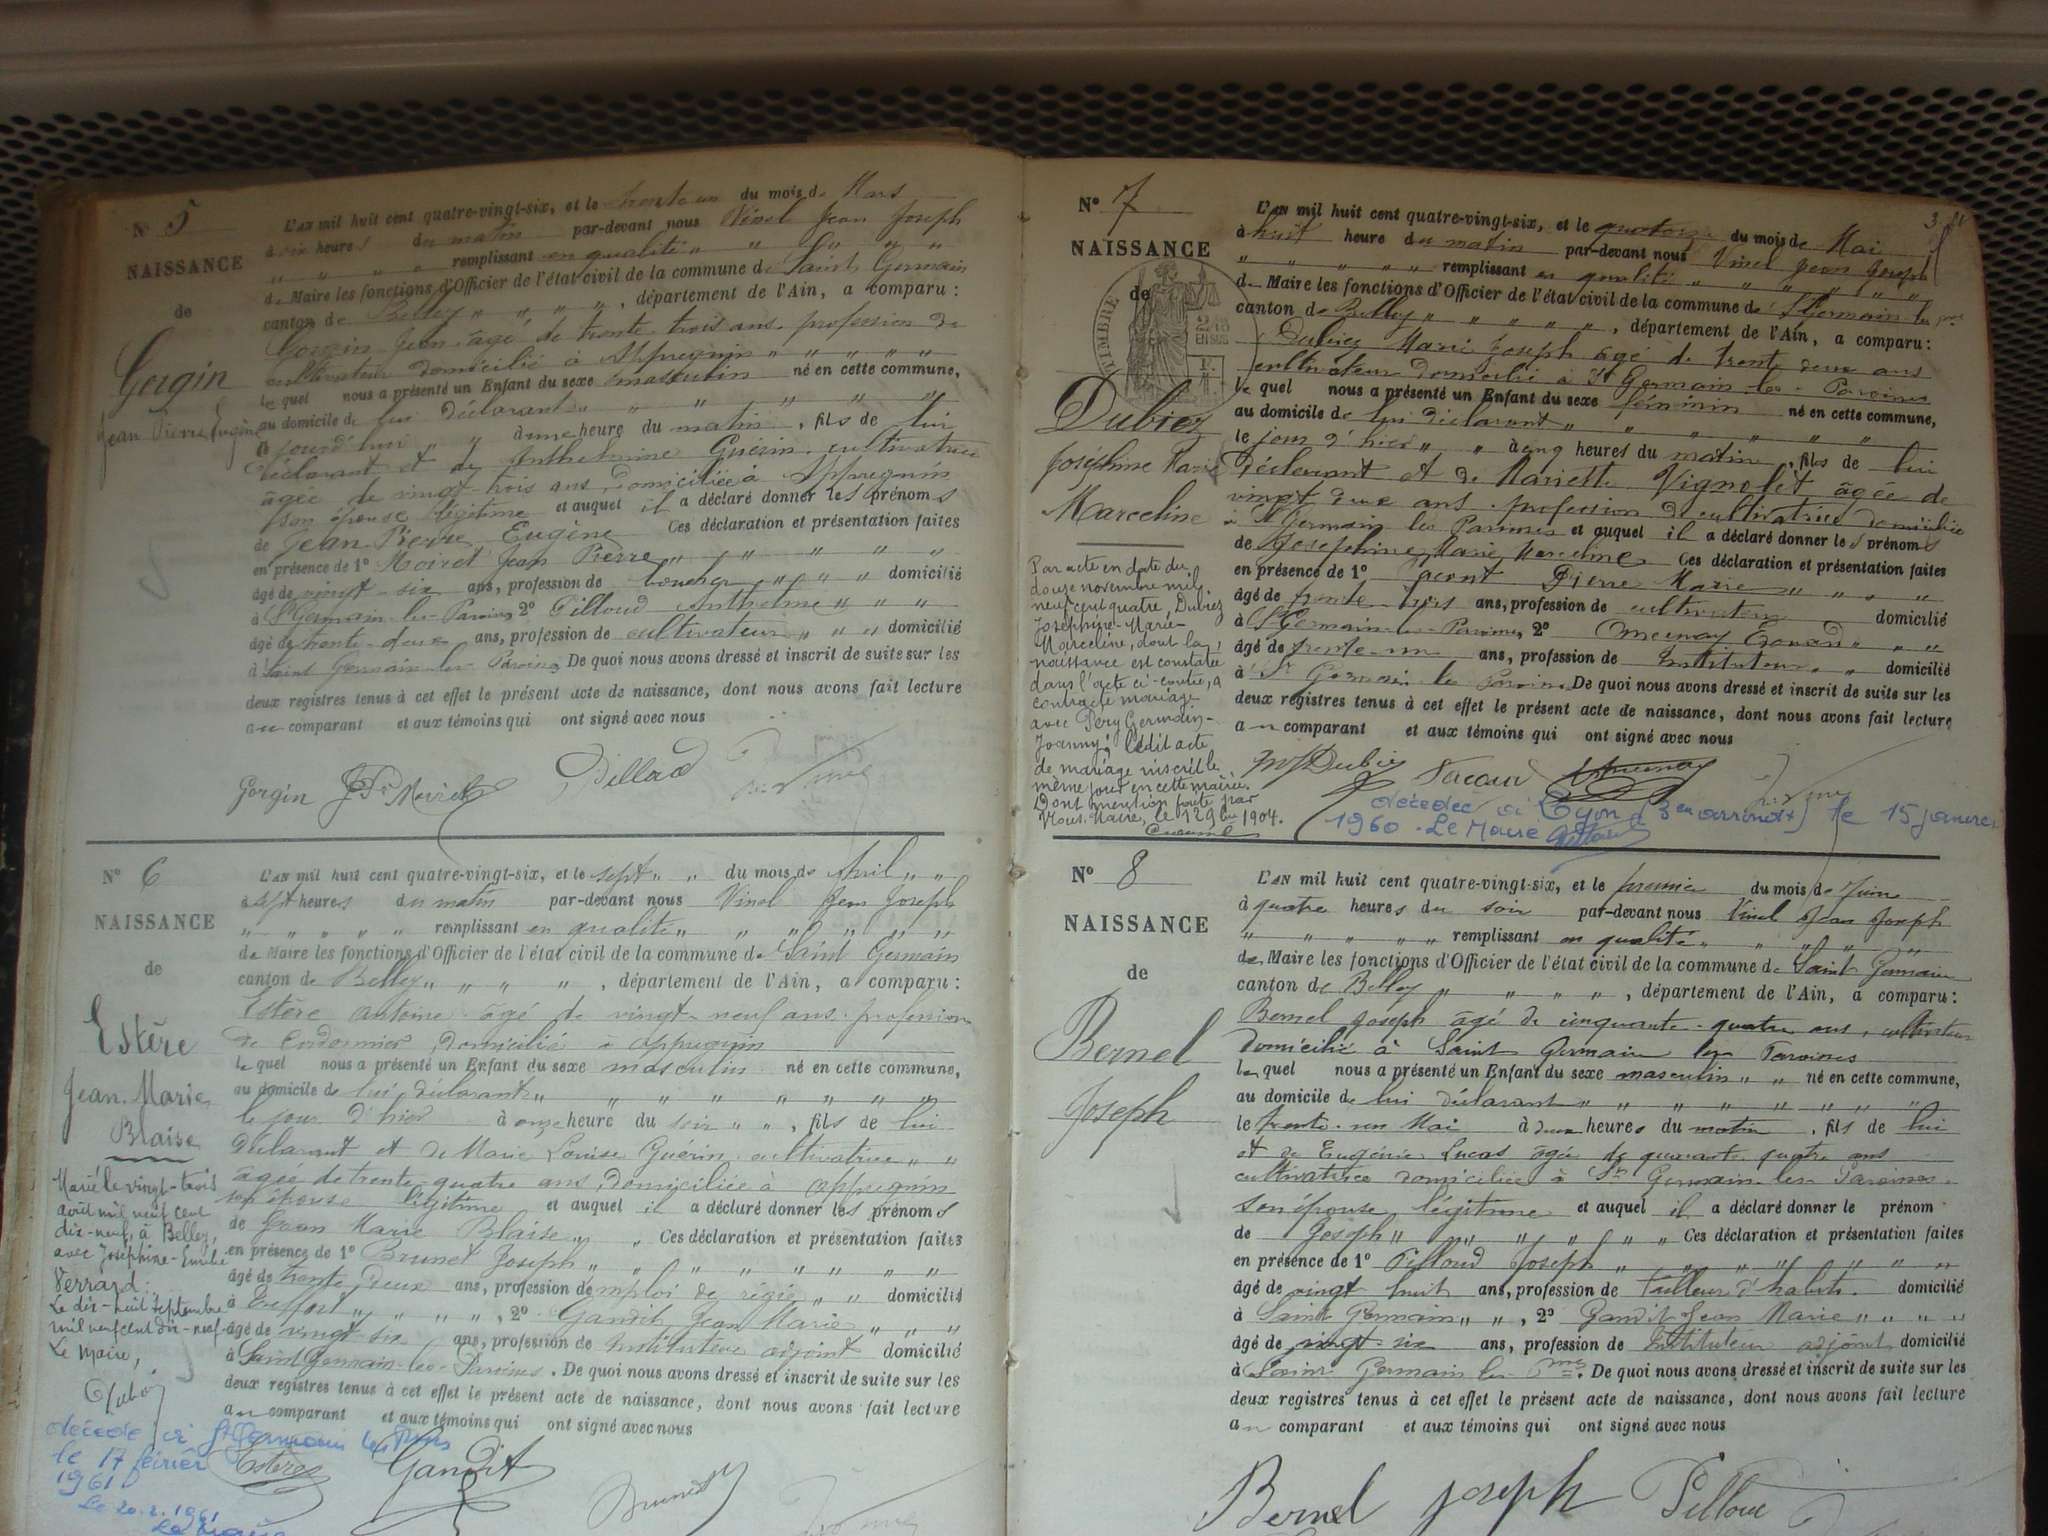 N° 5
NAISSANCE
de
Gorgin
Jean Pierre Eugène
L'AN mil huit cent quatre-vingt-six, et le trente un du mois de Mars
à six heures du matin par-devant nous Vinel Jean Joseph
" " " " remplissant en qualité " " " " "
de Maire les fonctions d'Officier de l'état civil de la commune de Saint Germain
canton de Belley " " " ", département de l'Ain, a comparu :
Gorgin Jean âgé de trente-trois ans profession de
cultivateur domicilié à Appregnin " " " " "
lequel nous a présenté un Enfant du sexe masculin né en cette commune,
au domicile de lui déclarant " " " " " "
aujourd'hui " " à une heure du matin, fils de lui
déclarant et de Anthelmine Guérin cultivatrice
âgée de vingt-trois ans domiciliée à Appregnin
son épouse légitime et auquel il a déclaré donner les prénoms
de Jean Pierre Eugène Ces déclaration et présentation faites
en présence de 1° Moiret Jean Pierre " " " " " "
âgé de vingt-six ans, profession de boucher " " " domicilié
à St Germain les Paroisses 2° Pilloud Anthelme " " "
âgé de trente-deux ans, profession de cultivateur " " " domicilié
à Saint Germain les Paroisses De quoi nous avons dressé et inscrit de suite sur les
deux registres tenus à cet effet le présent acte de naissance, dont nous avons fait lecture
au comparant et aux témoins qui ont signé avec nous
Gorgin JP Moiret Pilloud
N° 6
NAISSANCE
de
Estère
Jean-Marie
Blaise
Marié le vingt-trois
août mil neuf cent
dix-neuf, à Belley,
avec Joséphine-Emilie
Verrard.
Le dix-huit Septembre
mil neuf cent dix-neuf
Le Maire,
décédé à St Germain les Prses
le 17 février
1961
Le 20.2.1961
Le Maire
L'AN mil huit cent quatre-vingt-six, et le sept " " du mois de Avril " "
à sept heures du matin par-devant nous Vinel Jean Joseph
" " " " " remplissant en qualité " " " " " "
de Maire les fonctions d'Officier de l'état civil de la commune de Saint Germain
canton de Belley " " " ", département de l'Ain, a comparu :
Estère antoine âgé de vingt-neuf ans profession
de Cordonnier domicilié à appregnin
lequel nous a présenté un Enfant du sexe masculin né en cette commune,
au domicile de lui déclarant " " " " " " " "
le jour d'hier à onze heure du soir " ", fils de lui
déclarant et de Marie Louise Guérin cultivatrice " "
âgée de trente quatre ans domiciliée à appregnin
son épouse légitime et auquel il a déclaré donner les prénoms
de Jean Marie Blaise " " Ces déclaration et présentation faites
en présence de 1° Brunet Joseph " " " " " " " "
âgé de trente deux ans, profession de emploi de régie " " domicilié
à " " " " ", 2° Gandit Jean Marie " " "
âgé de vingt-six ans, profession de Instituteur adjoint domicilié
à Saint Germain-les-Paroisses. De quoi nous avons dressé et inscrit de suite sur les
deux registres tenus à cet effet le présent acte de naissance, dont nous avons fait lecture
au comparant et aux témoins qui ont signé avec nous
Estère Gandit Brunet
3
N° 7
NAISSANCE
de
TIMBRE
Dubiez
Joséphine Marie
Marceline
Par acte en date du
douze novembre mil
neuf cent quatre, Dubiez
Joséphine-Marie-
Marceline, dont la
naissance est constatée
dans l'acte ci-contre, a
contracté mariage
avec Pery Germain-
Joanny; ledit acte
de mariage inscrit le
même jour en cette mairie.
Dont mention faite par
Nous, Maire, le 12 9bre 1904.
L'AN mil huit cent quatre-vingt-six, et le quatorze du mois de Mai
à huit heure du matin par-devant nous Vinel Jean Joseph
" " " " " remplissant en qualité " " " " " "
de Maire les fonctions d'Officier de l'état civil de la commune de St Germain les
canton de Belley " " " " ", département de l'Ain, a comparu :
Dubiez Marie Joseph âgé de trente deux ans
cultivateur domicilié à St Germain-les-Paroisses
lequel nous a présenté un Enfant du sexe féminin né en cette commune,
au domicile de lui déclarant " " " " " "
le jour d'hier " " à cinq heures du matin, fille de lui
déclarant et de Mariette Vignolet âgée de
vingt deux ans profession de cultivatrice domiciliée
à St Germain les Paroisses et auquel il a déclaré donner les prénoms
de Joséphine Marie Marceline Ces déclaration et présentation faites
en présence de 1° Pierre Marie " " " "
âgé de trente-trois ans, profession de cultivateur domicilié
à St Germain-les-Paroisses, 2° " " "
âgé de trente-un ans, profession de Instituteur " " domicilié
à St Germain les Paroisses. De quoi nous avons dressé et inscrit de suite sur les
deux registres tenus à cet effet le présent acte de naissance, dont nous avons fait lecture
au comparant et aux témoins qui ont signé avec nous
MJ Dubiez
décédée à Lyon (3em arrondt) le 15 janvier
1960. Le Maire
N° 8
NAISSANCE
de
Bernel
Joseph
L'AN mil huit cent quatre-vingt-six, et le premier du mois de Juin
à quatre heures du soir par-devant nous Vinel Jean Joseph
" " " " " remplissant en qualité " " " " "
de Maire les fonctions d'Officier de l'état civil de la commune de Saint Germain
canton de Belley " " " " ", département de l'Ain, a comparu :
Bernel Joseph âgé de cinquante-quatre ans, cultivateur
domicilié à Saint Germain les Paroisses
lequel nous a présenté un Enfant du sexe masculin " " né en cette commune,
au domicile de lui déclarant " " " " " " " "
le trente-un Mai à deux heures du matin, fils de lui
et de Eugénie Lucas âgée de quarante quatre ans
cultivatrice domiciliée à St Germain-les-Paroisses
son épouse légitime et auquel il a déclaré donner le prénom
de Joseph " " " " " " " Ces déclaration et présentation faites
en présence de 1° Pilloud Joseph " " " " " " "
âgé de vingt huit ans, profession de Tailleur d'habits. domicilié
à Saint Germain " ", 2° Gandit Jean Marie " " " "
âgé de vingt-six ans, profession de Instituteur adjoint domicilié
à Saint Germain les Pses. De quoi nous avons dressé et inscrit de suite sur les
deux registres tenus à cet effet le présent acte de naissance, dont nous avons fait lecture
au comparant et aux témoins qui ont signé avec nous
Bernel Joseph Pilloud